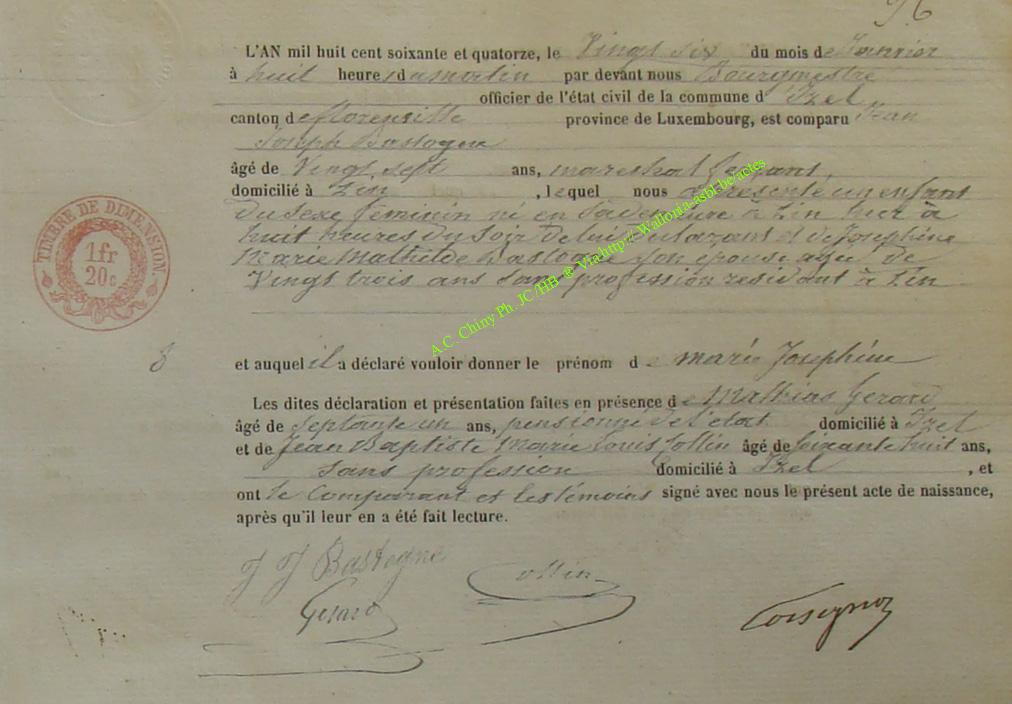 96
L'AN mil huit cent soixante et quatorze, le Vingt six du mois de Janvier
à huit heures du matin par devant nous Bourgmestre
officier de l'état civil de la commune d'Izel
canton de florenville province de Luxembourg, est comparu Jean
Joseph Bastogne
âgé de Vingt sept ans, mareshal ferrant,
domicilié à Pin, lequel nous a présenté un enfant
Du sexe féminin né en sa demeure à Pin hier à
huit heures Du Soir de lui déclarant et de Joséphine
Marie Mathilde son épouse agée de
Vingt trois ans Sans profession residant à Pin
TIMBRE DE DIMENSION
1fr
20c
8
et auquel il a déclaré vouloir donner le prénom de marie Josephine
Les dites déclaration et présentation faites en présence de Mathias Gerard
âgé de Septante un ans, pensionné de l'état domicilié à Izel
et de Jean Baptiste Marie Louis Collin âgé de Soixante huit ans,
Sans profession domicilié à Izel, et
ont le Comparant et les témoins signé avec nous le présent acte de naissance,
après qu'il leur en a été fait lecture.
J J Bastogne
Collin
Gerard
A.C. Chiny Ph. JC/HB @ Via http:// Wallonia-asbl.be/actes